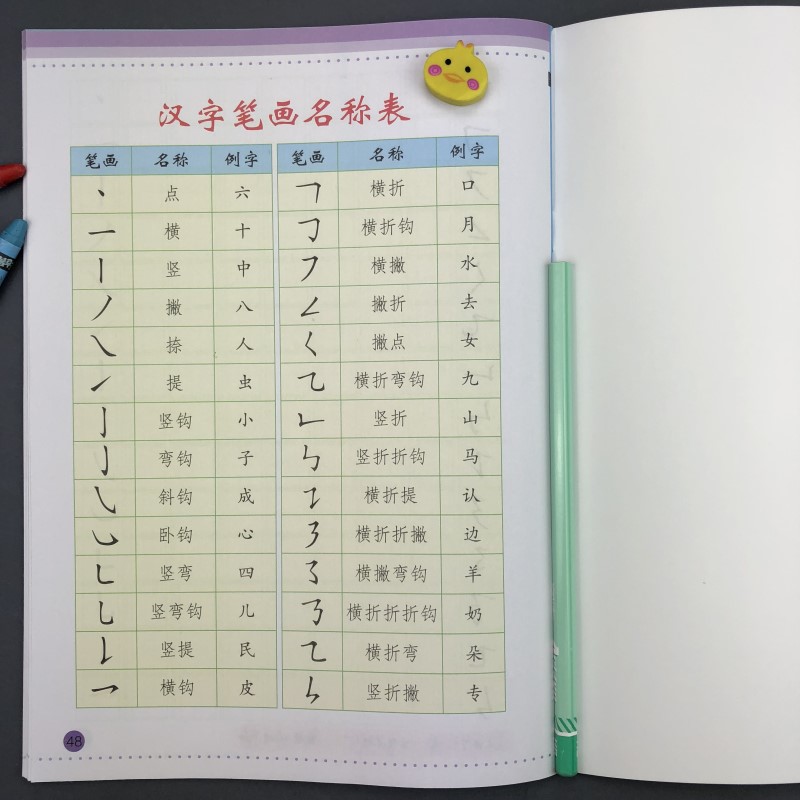 汉字笔画名称表
笔画 名称 例字 笔画 名称 例字
丶 点 六 ㇕ 横折 口
一 横 十 ㇆ 横折钩 月
丨 竖 中 ㇇ 横撇 水
丿 撇 八 ㇜ 撇折 去
㇏ 捺 人 ㇛ 撇点 女
㇀ 提 虫 ㇈ 横折弯钩 九
亅 竖钩 小 ㇗ 竖折 山
㇁ 弯钩 子 ㇉ 竖折折钩 马
㇂ 斜钩 成 ㇊ 横折提 认
㇃ 卧钩 心 ㇋ 横折折撇 边
㇄ 竖弯 四 ㇌ 横撇弯钩 羊
㇟ 竖弯钩 儿 ㇡ 横折折折钩 奶
㇙ 竖提 民 ㇍ 横折弯 朵
㇖ 横钩 皮 ㇞ 竖折撇 专
48